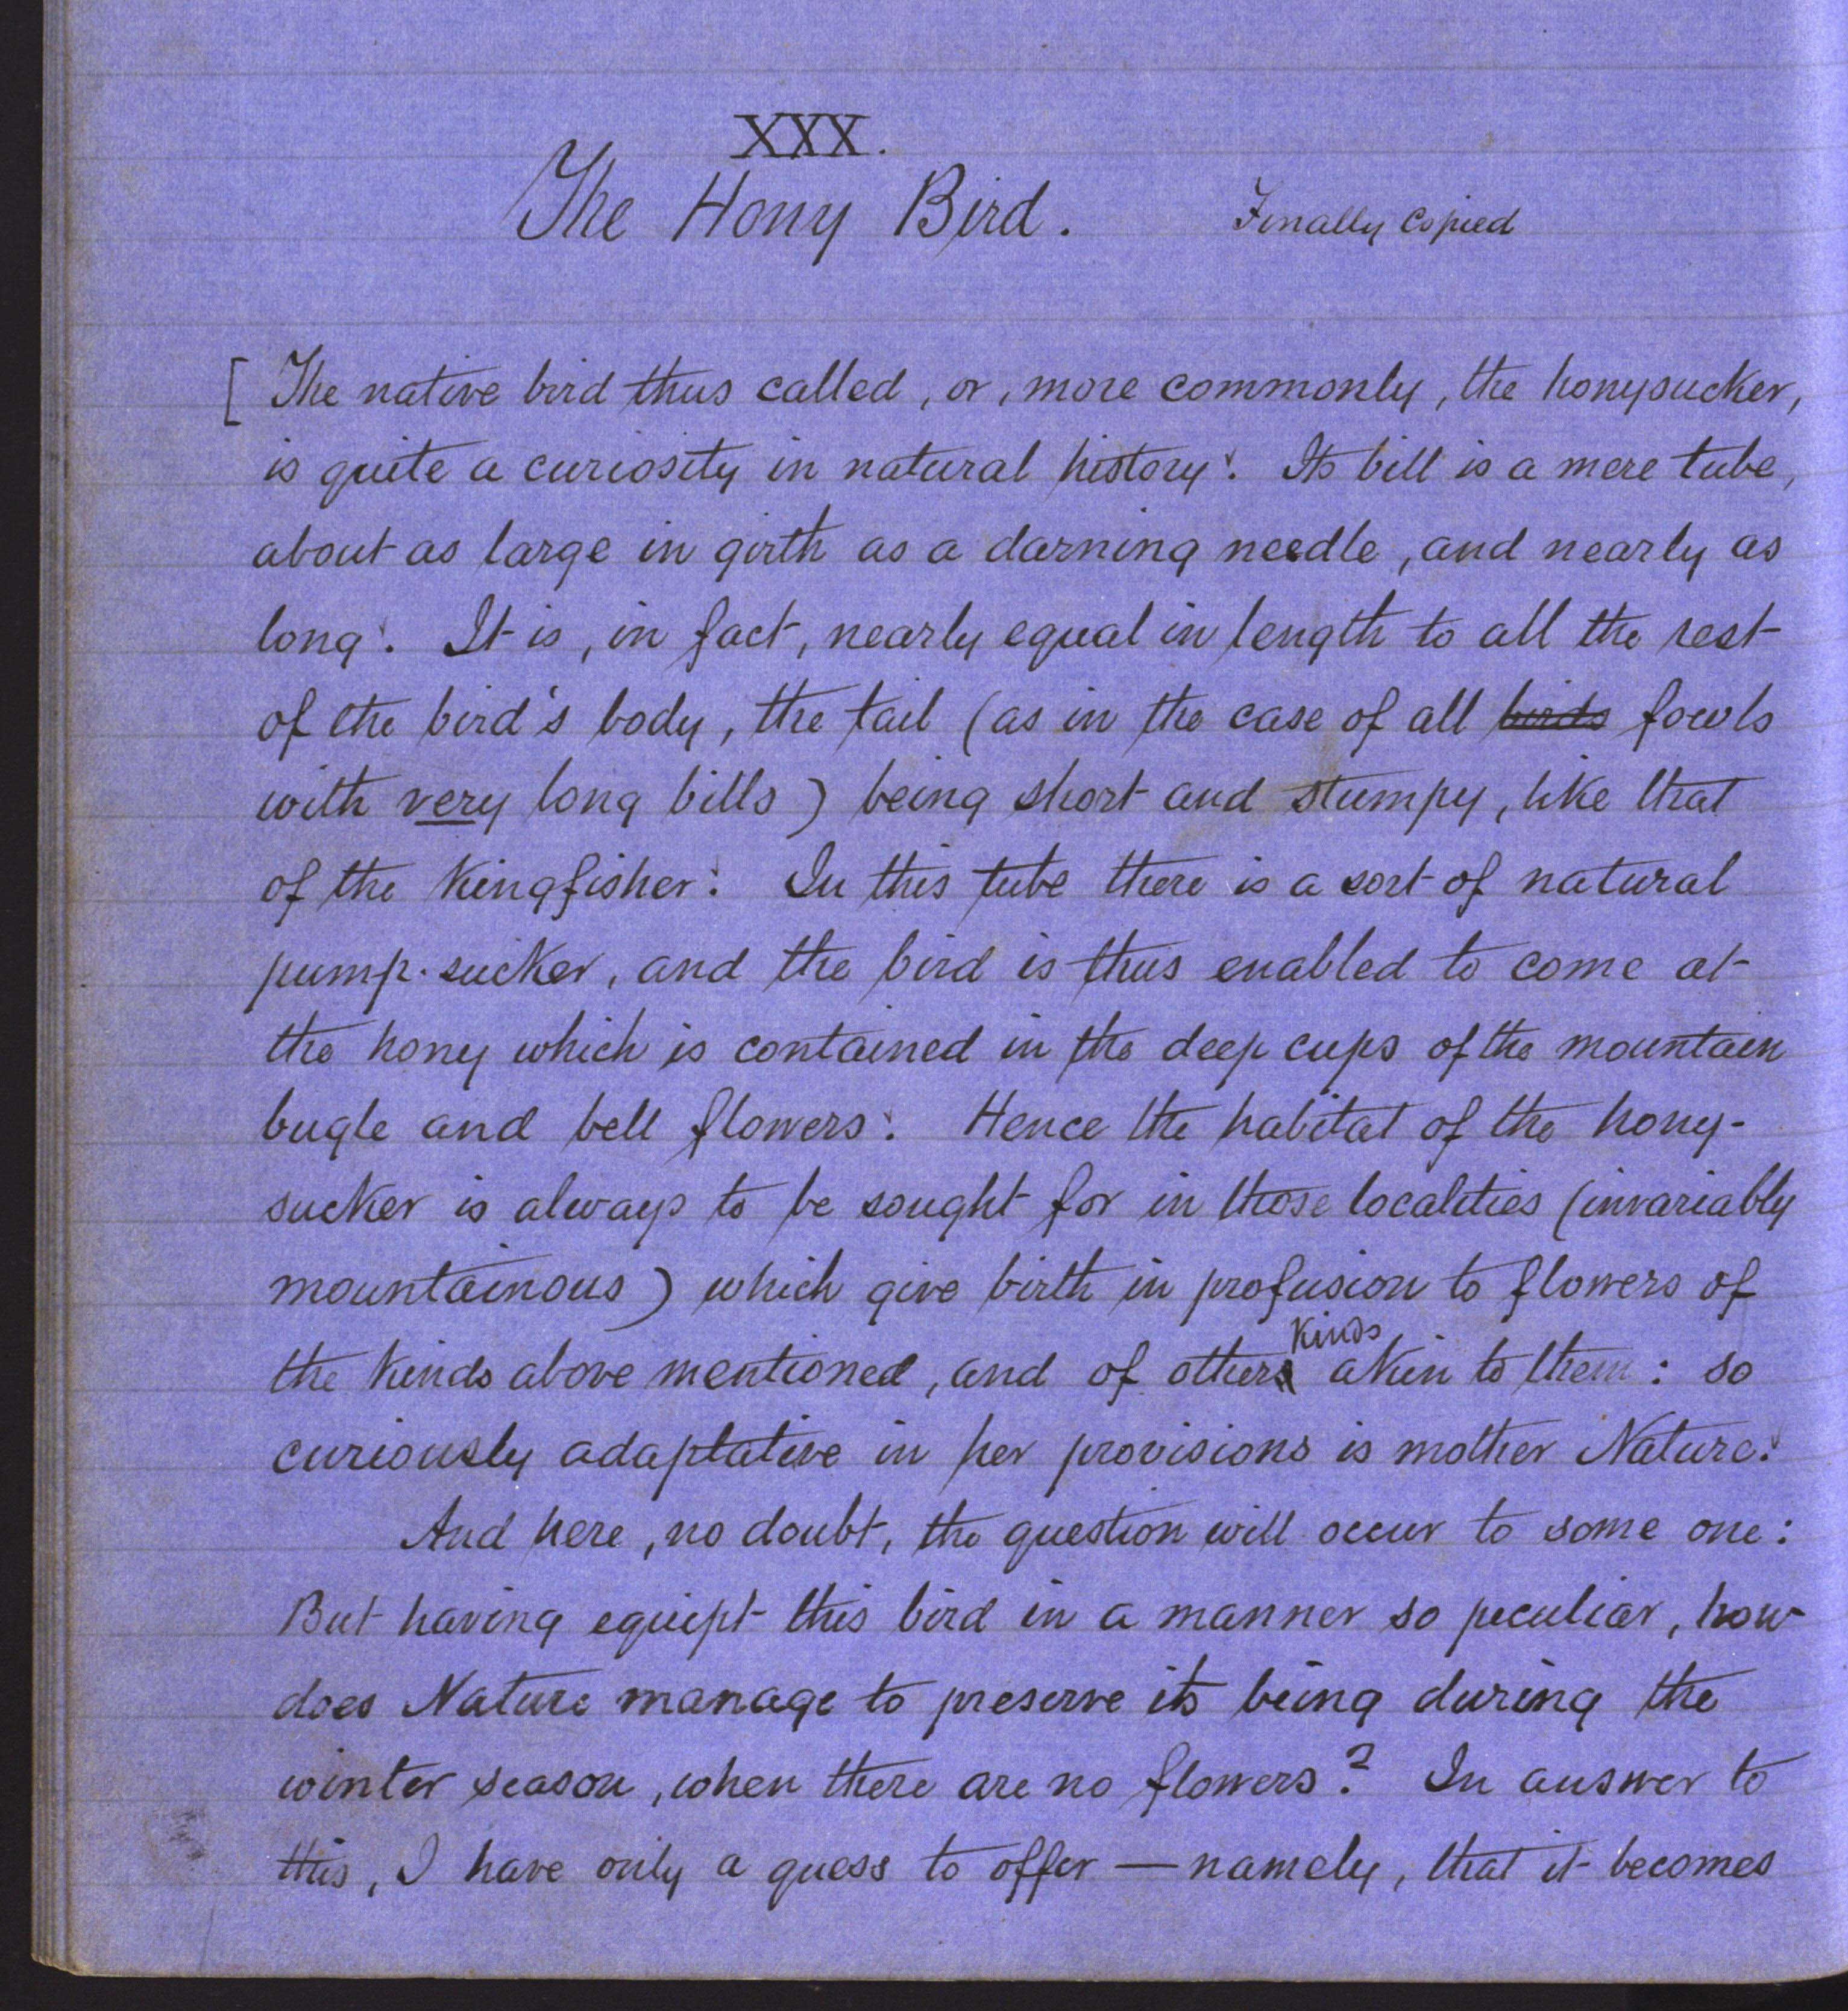 XXX.
The Hony Bird. Finally Copied
[ The native bird thus called, or, more commonly, the honysucker,
is quite a curiosity in natural history. Its bill is a mere tube,
about as large in girth as a darning needle, and nearly as
long. It is, in fact, nearly equal in length to all the rest
of the bird's body, the tail (as in the case of all birds fowls
with very long bills) being short and stumpy, like that
of the Kingfisher. In this tube there is a sort of natural
pump-sucker, and the bird is thus enabled to come at
the hony which is contained in the deep cups of the mountain
bugle and bell flowers. Hence the habitat of the hony-
sucker is always to be sought for in those localities (invariably
mountainous) which give birth in profusion to flowers of
the Kinds above mentioned, and of others Kinds akin to them: so
curiously adaptative in her provisions is mother Nature.
And here, no doubt, the question will occur to some one:
But having equipt this bird in a manner so peculiar, how
does Nature manage to preserve its being during the
winter season, when there are no flowers? In answer to
this, I have only a guess to offer — namely, that it becomes